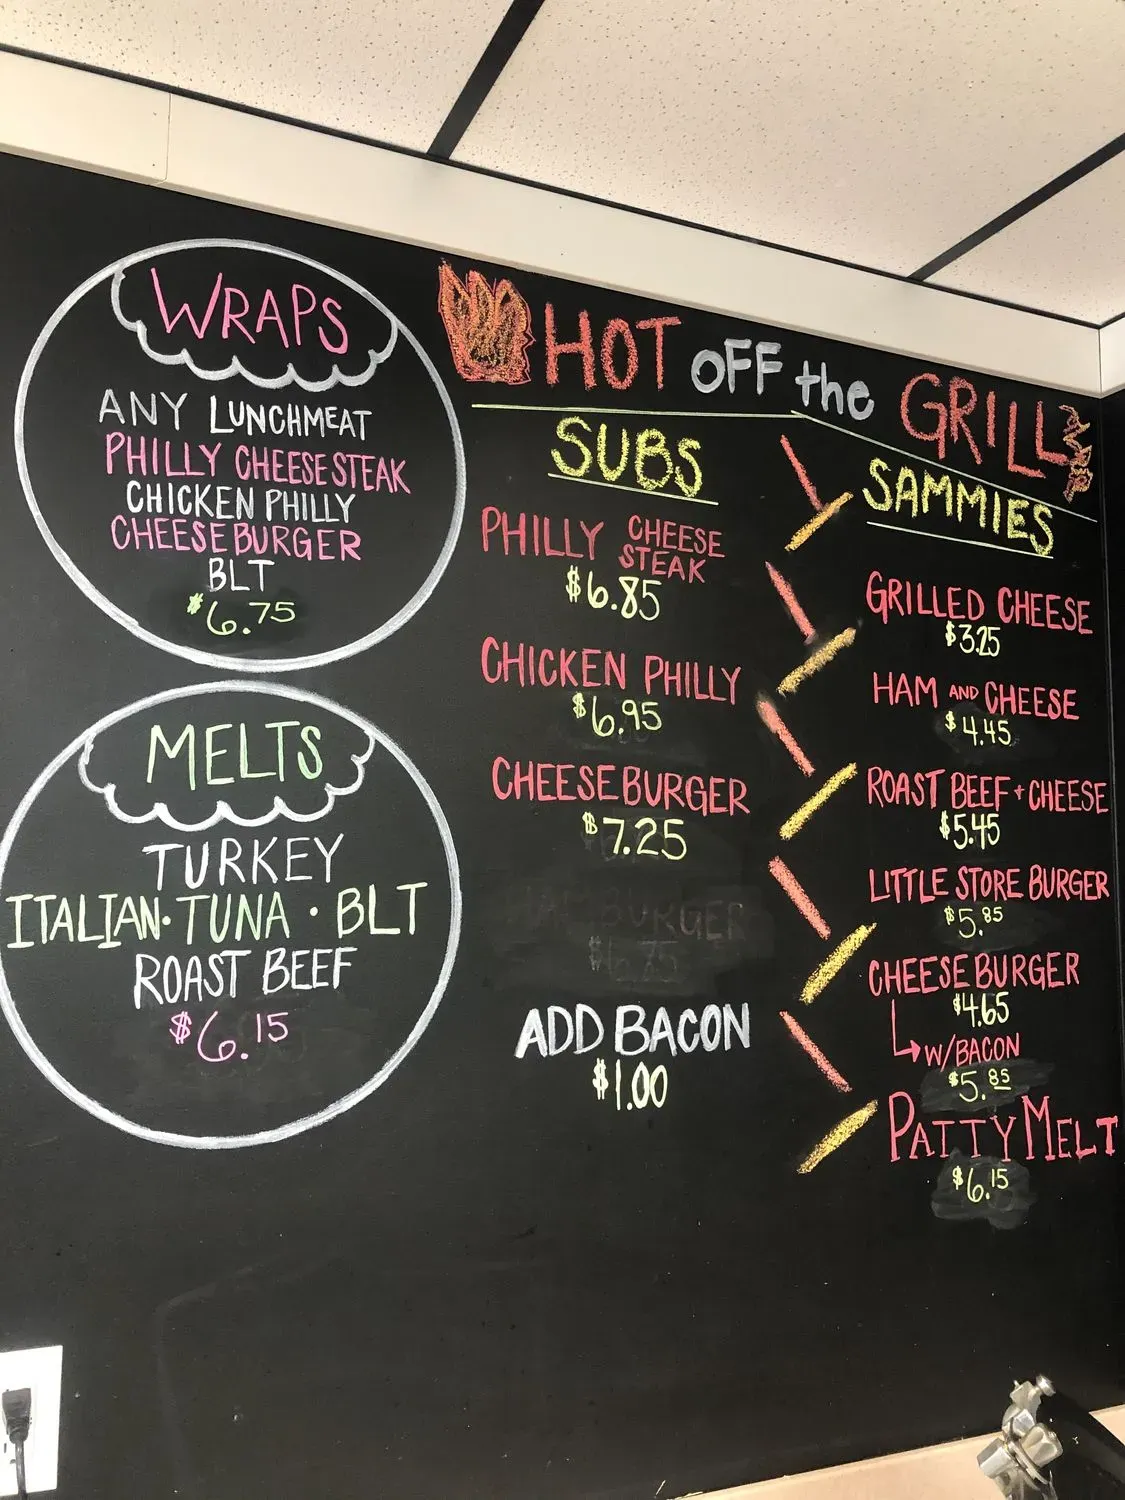 WRAPS
ANY LUNCHMEAT
PHILLY CHEESESTEAK
CHICKEN PHILLY
CHEESEBURGER
BLT
$6.75
MELTS
TURKEY
ITALIAN·TUNA·BLT
ROAST BEEF
$6.15
HOT OFF the GRILL
SUBS
PHILLY CHEESE
STEAK
$6.85
CHICKEN PHILLY
$6.95
CHEESEBURGER
$7.25
BURGER
$6.75
ADD BACON
$1.00
SAMMIES
GRILLED CHEESE
$3.25
HAM AND CHEESE
$4.45
ROAST BEEF + CHEESE
$5.45
LITTLE STORE BURGER
$5.85
CHEESEBURGER
$4.65
W/BACON
$5.85
PATTY MELT
$6.15